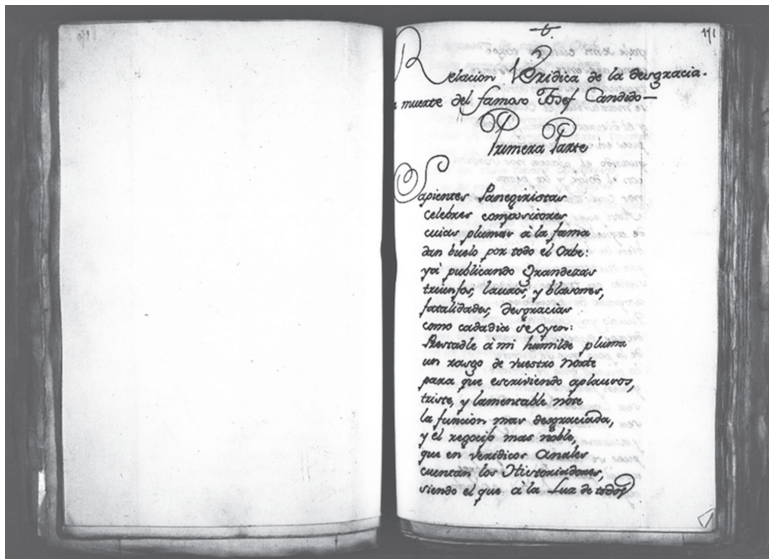 171
Relacion Veridica de la desgracia.
muerte del famoso Josef Candido—
Primera Parte
Sapientes Panegiristas
celebres compositores
cuias plumas à la fama
dan buelo por todo el Orbe:
yà publicando Grandezas
triunfos, lauros, y blasones,
fatalidades, desgracias
como cadadia se Oyen:
Prestadle à mi humilde pluma
un rasgo de vuestro norte
para que escriviendo aplausos,
triste, y lamentable note
la funcion mas desgraciada,
y el regocijo mas noble,
que en Veridicos Anales
cuentan los Historiadores,
siendo el que à la Luz de todos